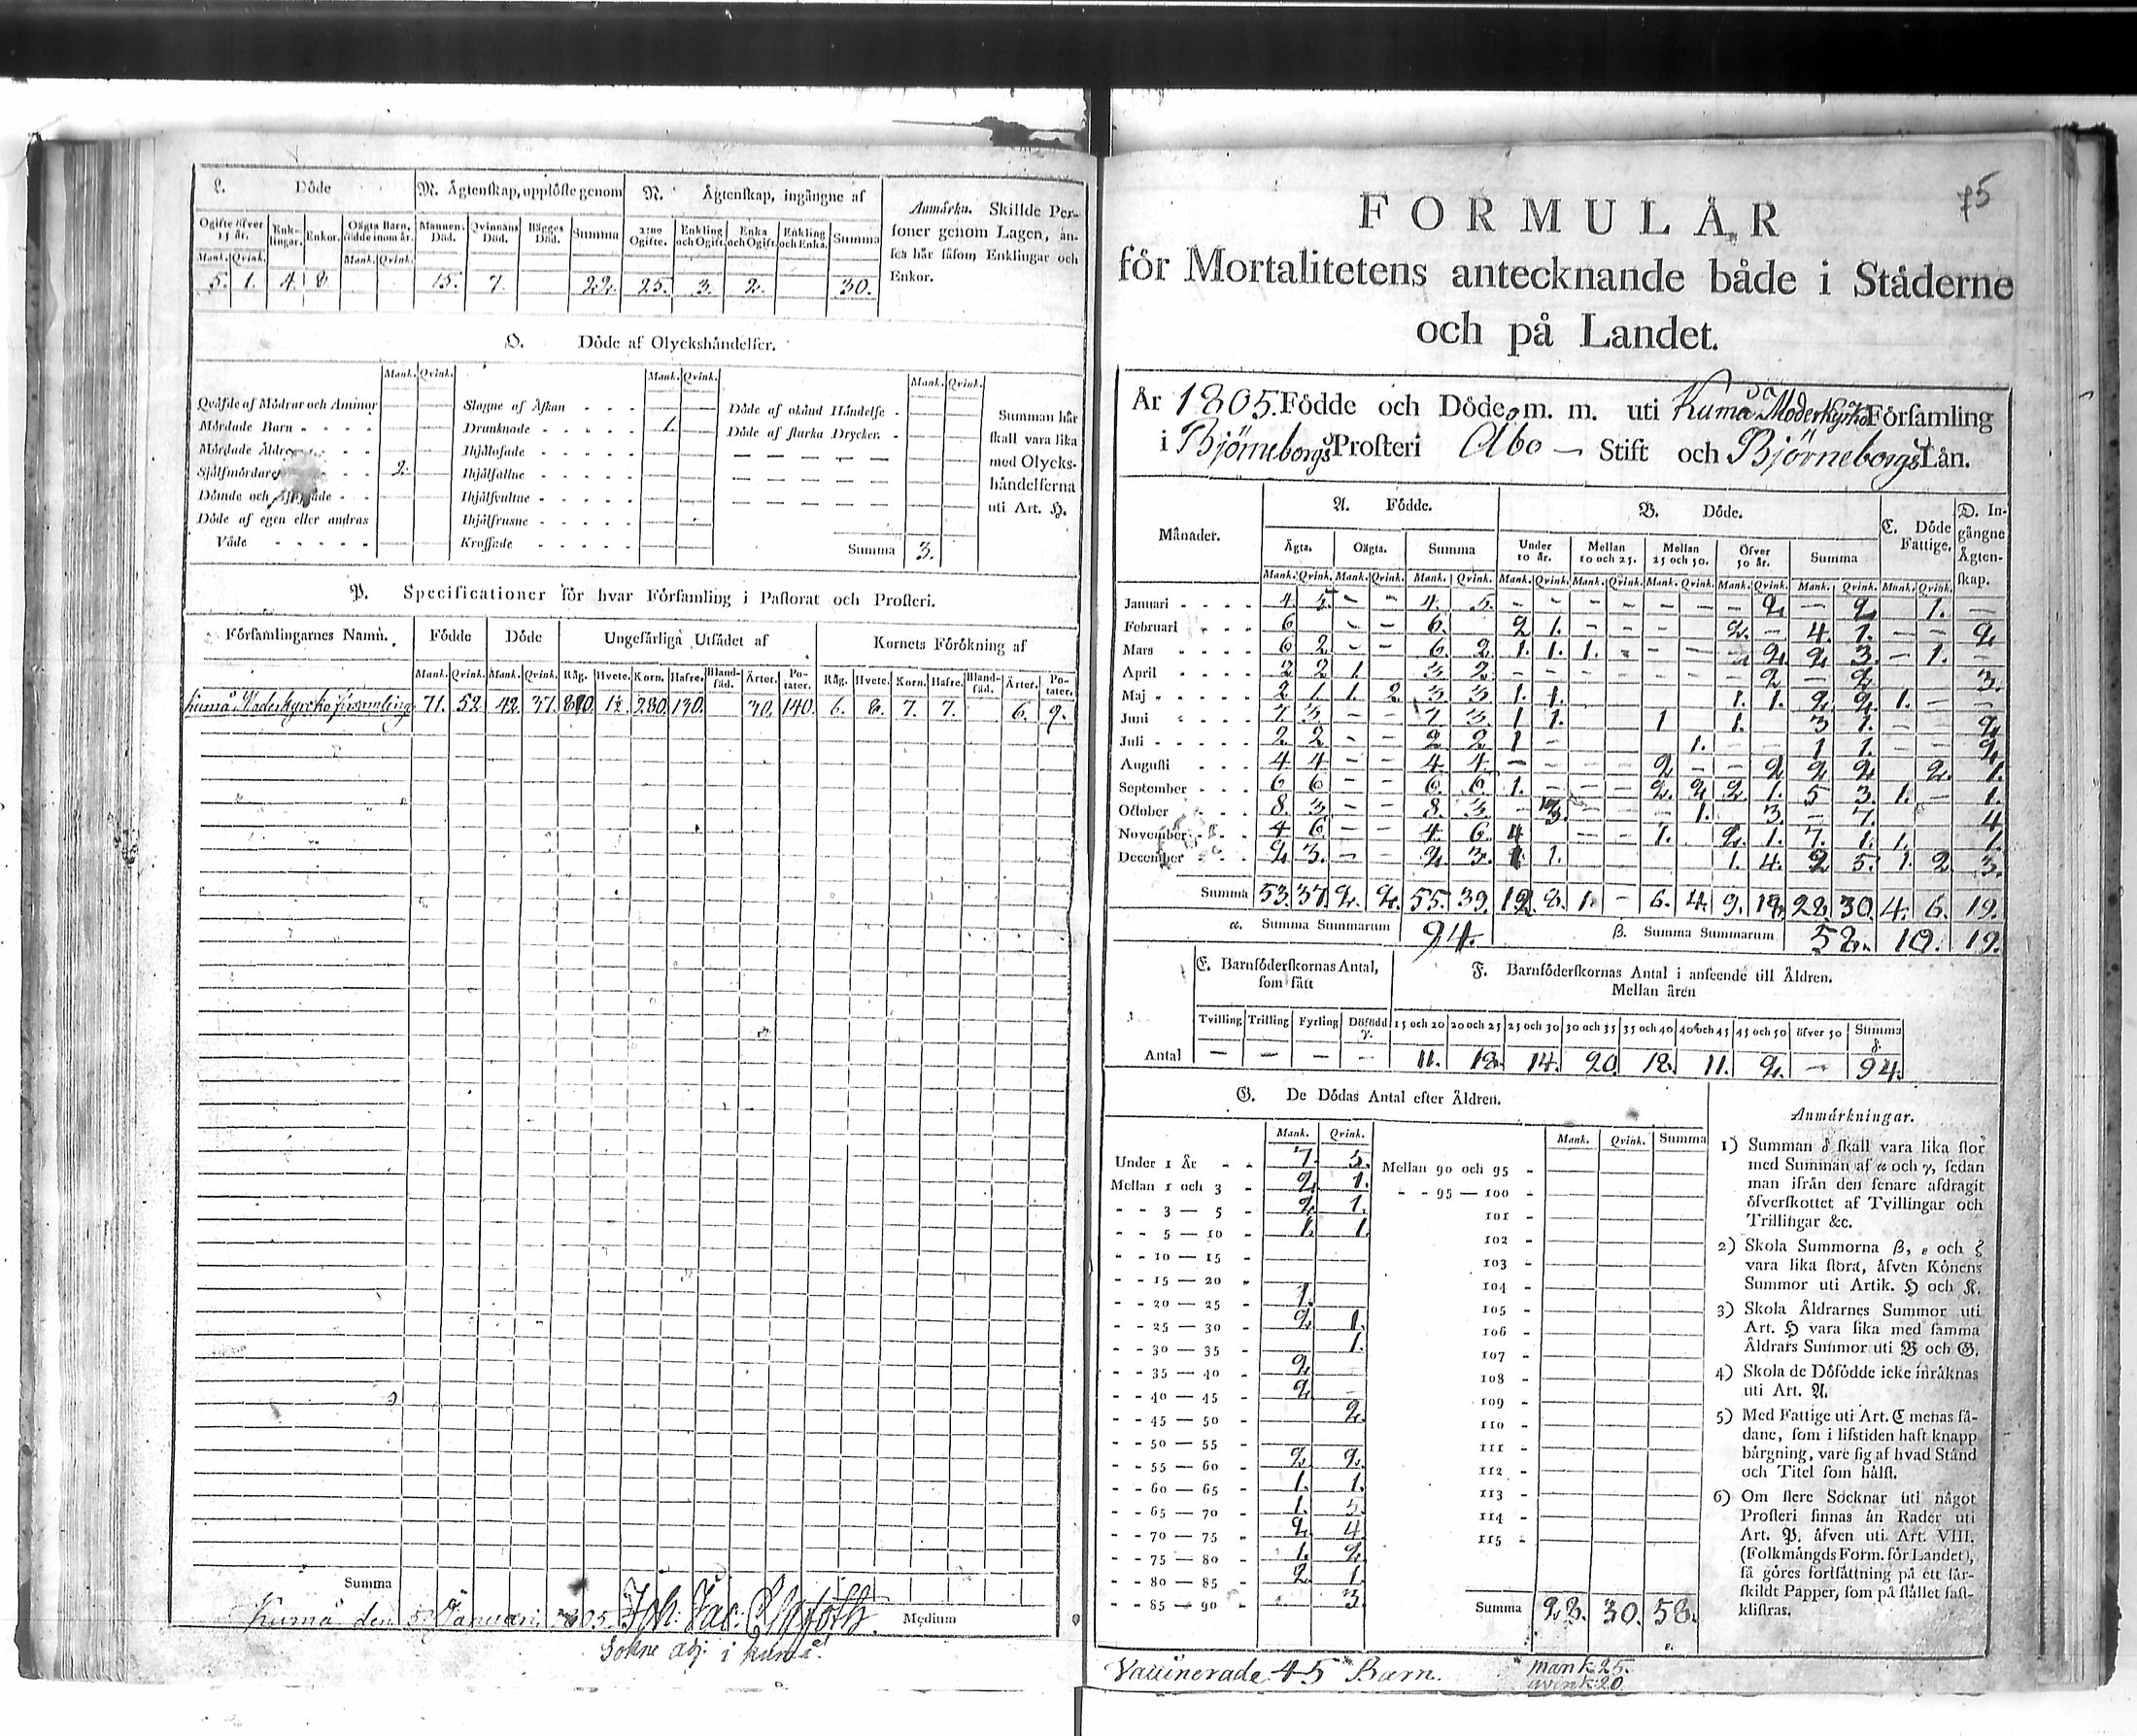 L. Döde
M. Ägtenskap, upplöste genom
N. Ägtenskap, ingångne af
Anmärkn. Skillde Personer genom Lagen, anses här såsom Enklingar och Enkor.
Ogifte öfver 15 år. Enklingar. Enkor. Oägta Barn, födde inom år. Mannens Död. Qvinnans Död. Bägges Död. Summa 2:ne Ogifte. Enkling och Ogift. Enka och Ogift. Enkling och Enka. Summa
Mank. Qvink. Mank. Qvink.
5. 1. 4. 8 15. 7. 22. 25. 3. 2. 30.
O. Döde af Olyckshändelser.
Mank. Qvink. Mank. Qvink. Mank. Qvink.
Qväfde af Mödrar och Ammor
Mördade Barn
Mördade Äldre
Självmördare 2.
Dömde och
Döde af egen eller andras
Våde
Slagne af Åskan
Drunknade 1.
Ihjälosade
Ihjälfallne
Ihjälsvultne
Ihjälfrusne
Krossade
Döde af okänd Händelse
Döde af starka Drycker
Summa 3.
Summan här
skall vara lika
med Olycks-
händelserna
uti Art. H.
P. Specificationer för hvar Församling i Pastorat och Prosteri.
Församlingarnes Namn. Födde Döde Ungefärliga Utsädet af Kornets Förökning af
Mank. Qvink. Mank. Qvink. Råg. Hvete. Korn. Hafre. Blandsäd. Ärter. Potater. Råg. Hvete. Korn. Hafre. Blandsäd. Ärter. Potater.
Kumå Moderkyrcko församling 71. 52. 42. 37. 1½ 280. 130. 30. 140. 6. 8. 7. 7. 6. 9.
Summa
Medium
Kumå den 5 Januari 1805. Joh: Jac:
Sokne adj: i Kumå
75
FORMULÄR
för Mortalitetens antecknande både i Städerne
och på Landet.
År 1805. Födde och Döde m. m. uti Kumå Moderkyrko Församling
i Björneborgs Prosteri Åbo — Stift och Björneborgs Län.
Månader. A. Födde. B. Döde. C. Döde Fattige. D. Ingångne Ägtenskap.
Ägta. Oägta. Summa Under 10 år. Mellan 10 och 25. Mellan 25 och 50. Öfver 50 år. Summa
Mank. Qvink. Mank. Qvink. Mank. Qvink. Mank. Qvink. Mank. Qvink. Mank. Qvink. Mank. Qvink. Mank. Qvink. Mank. Qvink.
Januari 4. 5. – – 4. 5. – – – – – – – 2. – 2. 1. –
Februari 6 – – 6. 2 1. – – – 2. – 4. 1. – – 2.
Mars 6 2 – – 6. 2. 1. 1. 1. – – – 2. 2. 3. – 1. –
April 2 2 1. 3 2. – – – – – – – 2 – 2. 3.
Maj 2 1. 1. 2 3 3 1. 1. 1. 1. 2. 2. 1. – –
Juni 7 3 – – 7 3. 1 1. 1 1. 3 1. – – 2.
Juli 2 2 – – 2 2 1 – 1. – – 1 1. – – 2.
Augusti 4 4 – – 4. 4. – – – – 2 – – 2 2 2 2. 1.
September 6 6 – – 6. 6. 1. – – – 2. 2. 2. 1. 5 3. 1. – 1.
October 8. 3 – – 8. 3. – 3. – – – 1. 3. – 7. 4
November 4 6. – – 4 6. 4 – – 1. 2. 1. 7. 1. 1. 1.
December 2 3. – – 2. 3. 1. 1. 1. 4. 2 5. 1. 2 3.
Summa 53. 37. 2. 2. 55. 39. 12. 8. 1. – 6. 4. 9. 18. 28. 30. 4. 6. 19.
α. Summa Summarum 94. β. Summa Summarum 58. 10. 19.
E. Barnföderskornas Antal, som fått
F. Barnföderskornas Antal i anseende till Åldren.
Mellan åren
Tvilling Trilling Fyrling Döfödd γ. 15 och 20 20 och 25 25 och 30 30 och 35 35 och 40 40 och 45 45 och 50 öfver 50 Summa δ.
Antal – – – – 11. 18. 14. 20. 18. 11. 2. – 94.
G. De Dödas Antal efter Åldren.
Mank. Qvink. Mank. Qvink. Summa
Under 1 År 7. 5.
Mellan 1 och 3 2. 1.
3 — 5 2. 1.
5 — 10 1. 1
10 — 15
15 — 20
20 — 25 1.
25 — 30 2. 1.
30 — 35 1.
35 — 40 2.
40 — 45 2. –
45 — 50 2.
50 — 55
55 — 60 2. 2.
60 — 65 1. 1.
65 — 70 1. 5.
70 — 75 2. 4
75 — 80 1. 2.
80 — 85 2. 1.
85 — 90 3.
Mellan 90 och 95
95 — 100
101
102
103
104
105
106
107
108
109
110
111
112
113
114
115
Summa 28. 30. 58.
ε.
Anmärkningar.
1) Summan δ skall vara lika stor
med Summan af α och γ, sedan
man ifrån den senare afdragit
öfverskottet af Tvillingar och
Trillingar &c.
2) Skola Summorna β, ε och ζ
vara lika stora, äfven Könens
Summor uti Artik. H och K.
3) Skola Åldrarnes Summor uti
Art. H vara lika med samma
Åldrars Summor uti B och G.
4) Skola de Döfödde icke inräknas
uti Art. A.
5) Med Fattige uti Art. C menas så-
dane, som i lifstiden haft knapp
bärgning, vare sig af hvad Stånd
och Titel som hälst.
6) Om flere Socknar uti något
Prosteri finnas än Rader uti
Art. P. äfven uti Art. VIII.
(Folkmängds Form. för Landet),
så göres fortsättning på ett sär-
skildt Papper, som på stället fast-
klistras.
Vaccinerade 45 Barn. mank. 25.
qvink: 20.